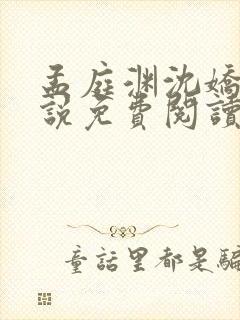 孟庭渊沈娇
说免費閱讀
童話里都是騙